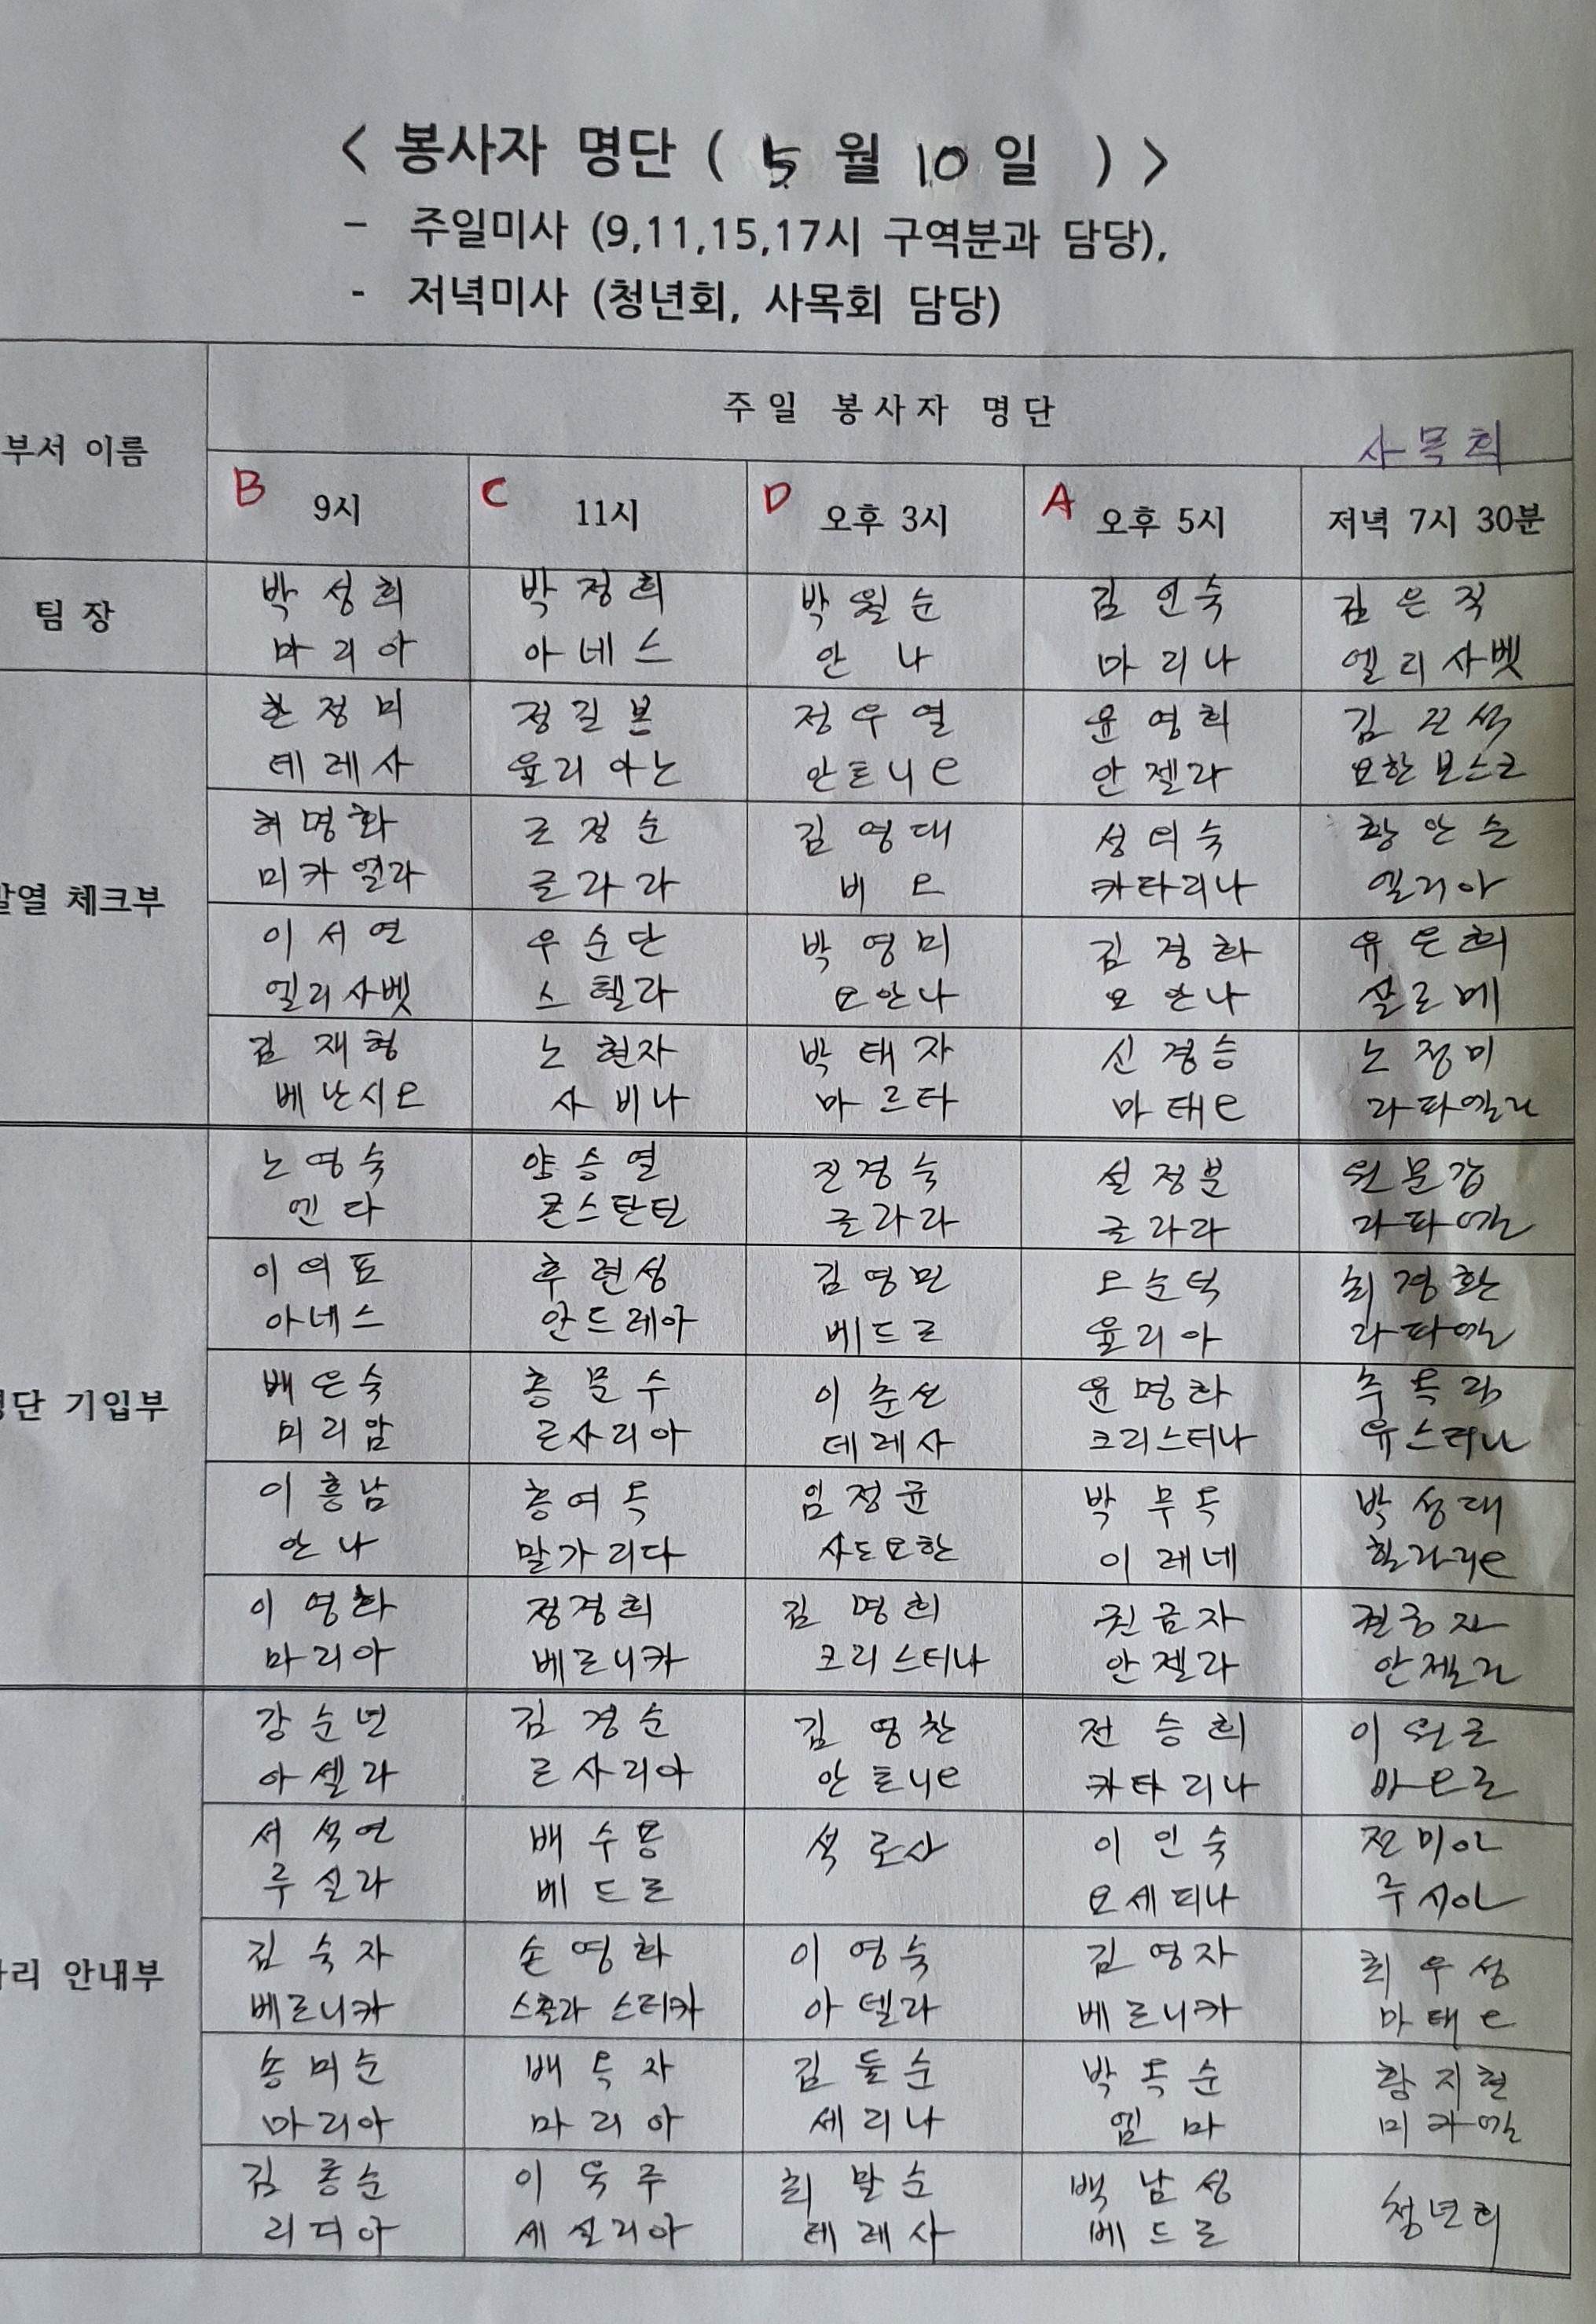 < 봉사자 명단 ( 5 월 10 일 ) >
- 주일미사 (9,11,15,17시 구역분과 담당),
- 저녁미사 (청년회, 사목회 담당)
부서 이름
주일 봉사자 명단
사목회
B 9시 C 11시 D 오후 3시 A 오후 5시 저녁 7시 30분
팀 장
박성희 박정희 박월순 김인숙 김은직
마리아 아네스 안나 마리나 엘리사벳
한정미 정길본 정우열 윤영희 김끈석
데레사 율리아노 안토니오 안젤라 요한보스코
발열 체크부
허명화 조정순 김영대 성의숙 황안순
미카엘라 글라라 비오 카타리나 엘리아
이서연 우순단 박영미 김경화 유은희
엘리사벳 스텔라 요안나 요안나 살로메
김재형 노현자 박태자 신경승 노정미
베난시오 사비나 마르타 마태오 라파엘라
노영숙 양승열 진경숙 설정분 원문갑
엔다 콘스탄틴 글라라 글라라 라파엘
이의표 후련성 김영민 오순덕 최경환
아네스 안드레아 베드로 율리아 라파엘
명단 기입부
배은숙 홍문수 이춘선 윤명화
미리암 로사리아 데레사 크리스티나 유스티나
이흥남 홍여옥 임정균 박무옥 박성대
안나 말가리다 사도요한 이레네 힐라리오
이영화 정경희 김명희 권금자
마리아 베로니카 크리스티나 안젤라 안젤라
강순년 김경순 김영찬 전승희 이원로
아셀라 로사리아 안토니오 카타리나 바오로
서석연 배수용 석로사 이인숙 전미아
루실라 베드로 요세피나 루시아
자리 안내부
김숙자 손영화 이영숙 김영자 최우성
베로니카 스콜라스티카 아델라 베로니카 마태오
송미순 배옥자 김둘순 박옥순 황지현
마리아 마리아 세리나 엠마 미카엘
김룡순 이옥주 최말순 백남성 청년회
리디아 세실리아 데레사 베드로